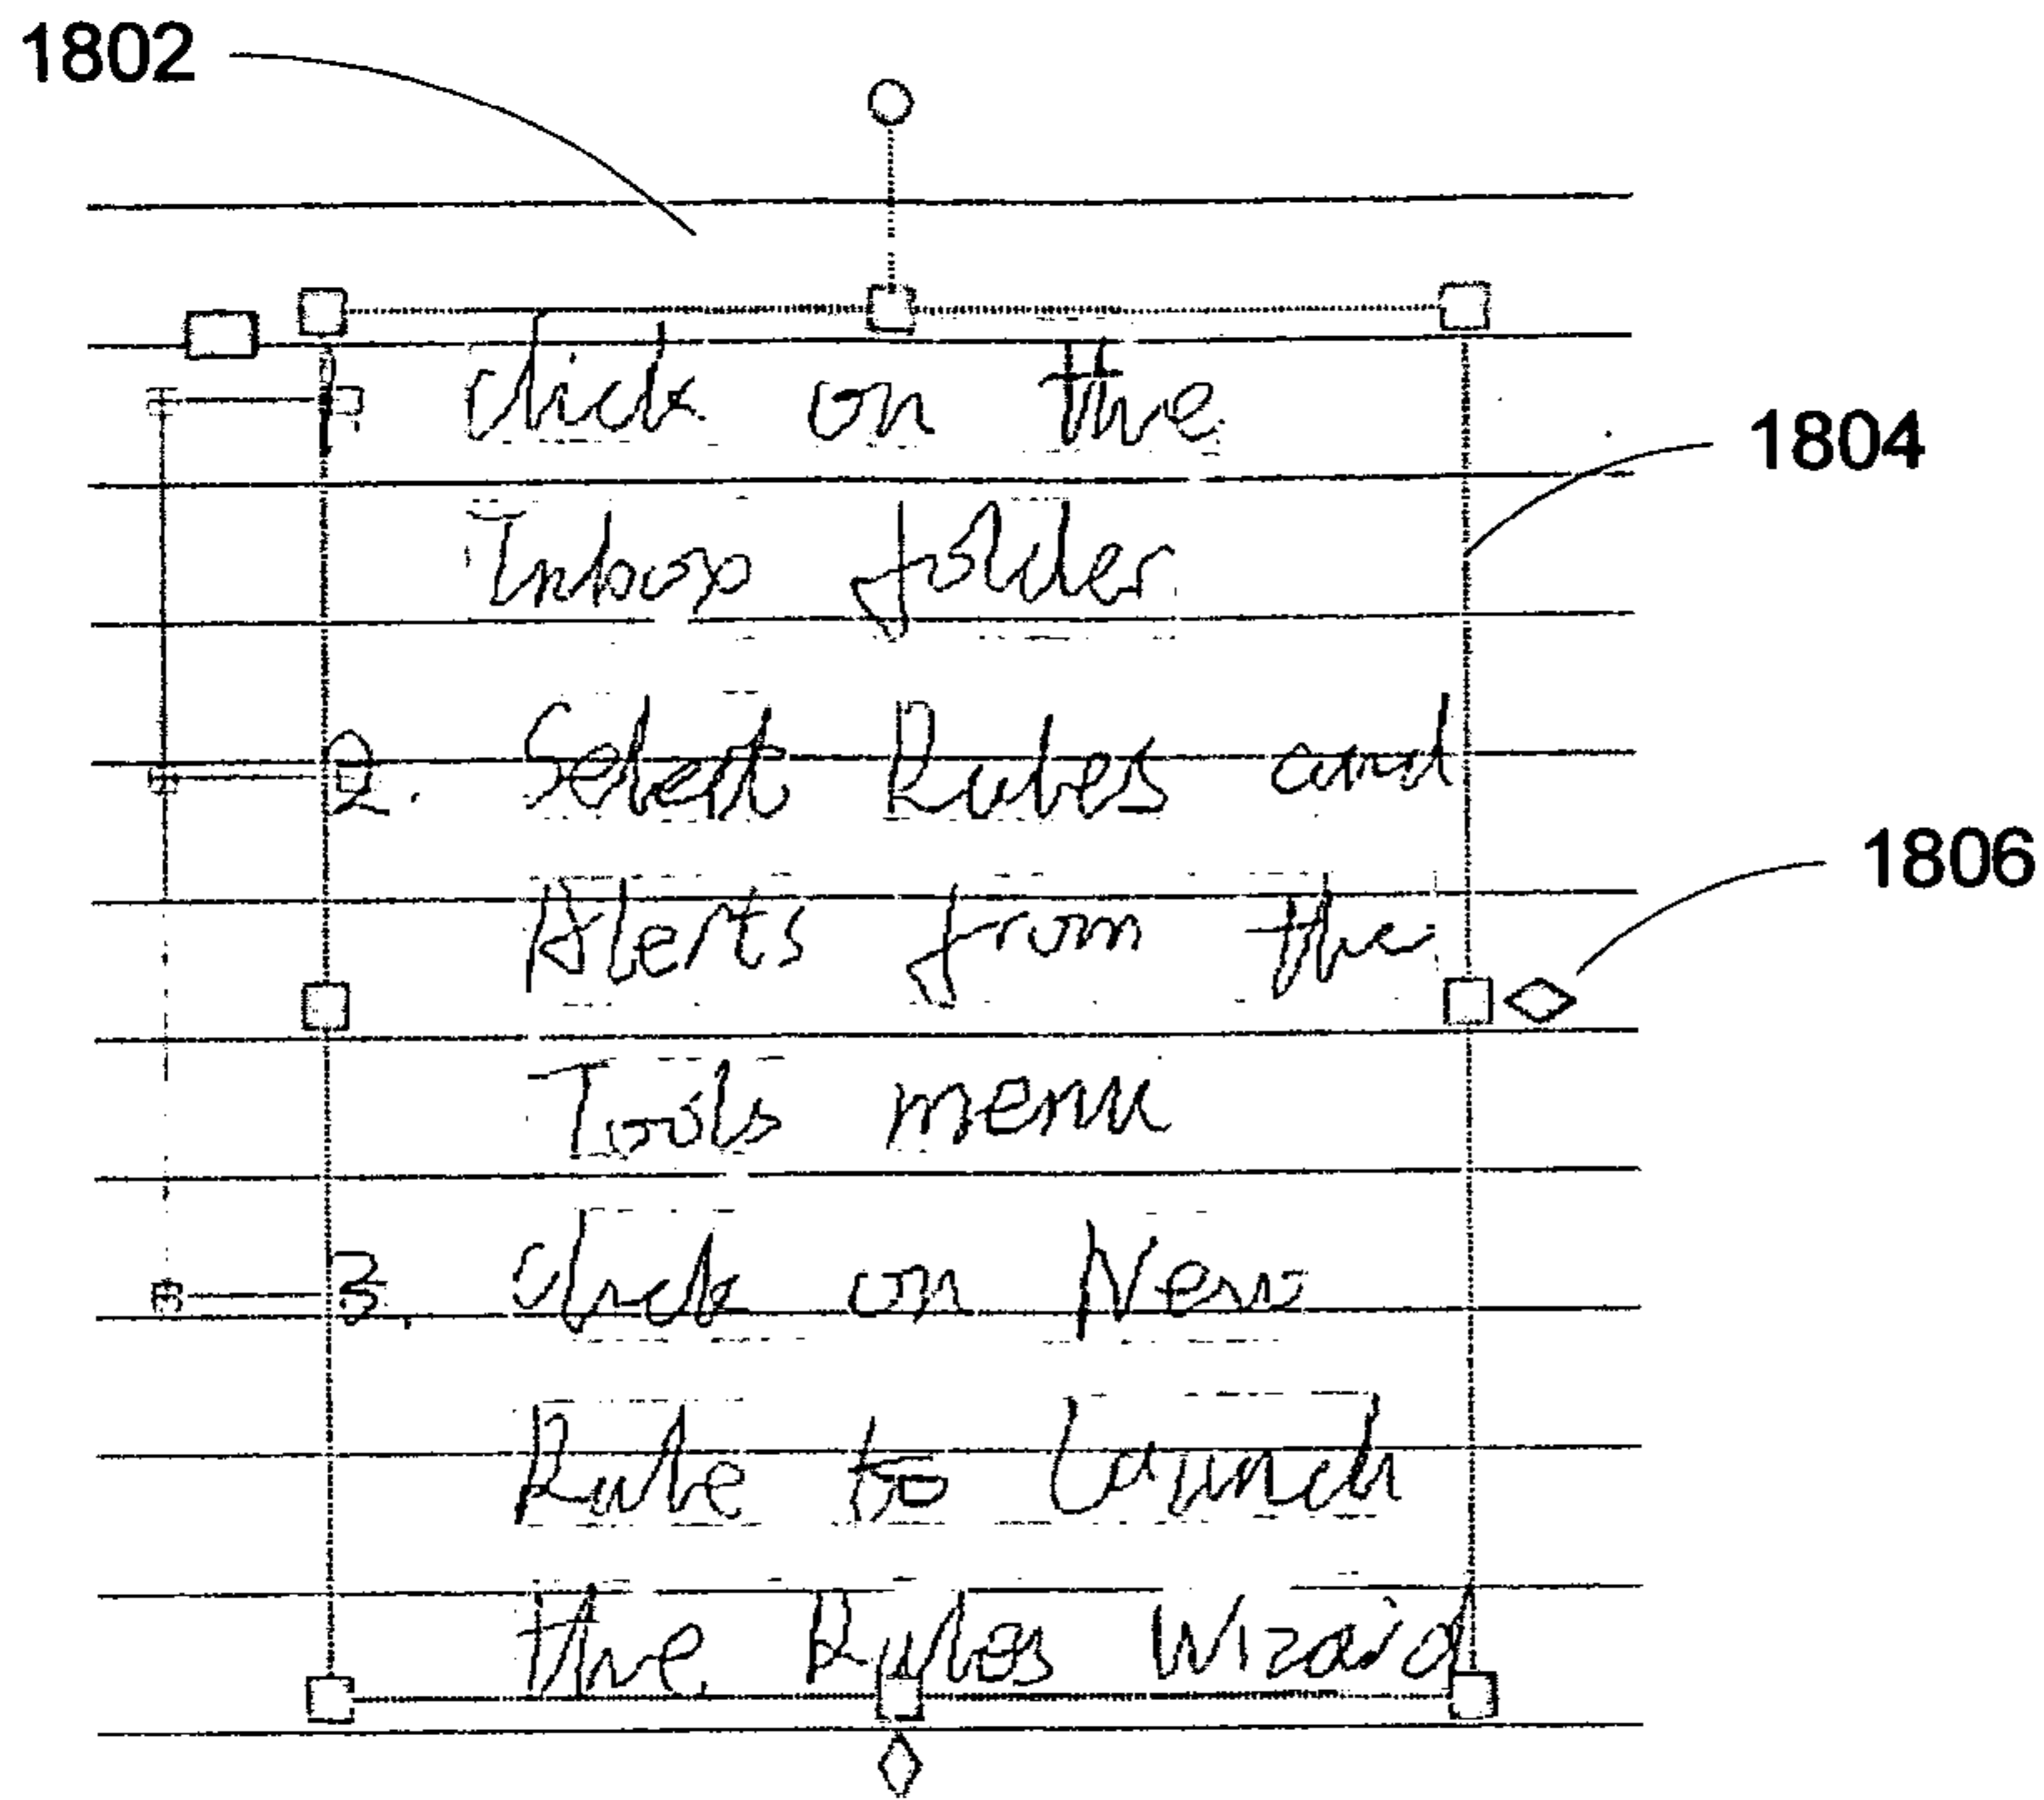 1802
1. click on the
1804
Inbox folder
2. Select Rules and
1806
Alerts from the
Tools menu
3. Click on New
Rule to launch
the Rules Wizard